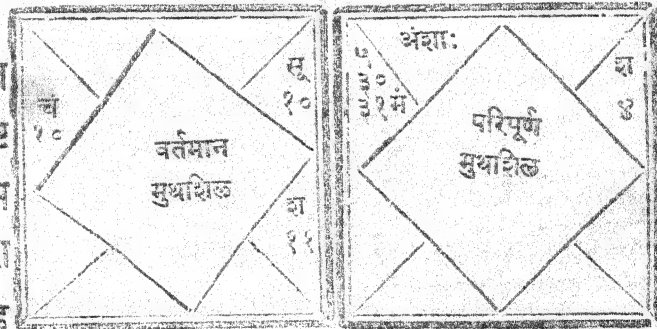 सू
१०
चं
१०
वर्तमान
मुथाशिल
श
११
अंशाः
मं
श
४
परिपूर्ण
मुथाशिल